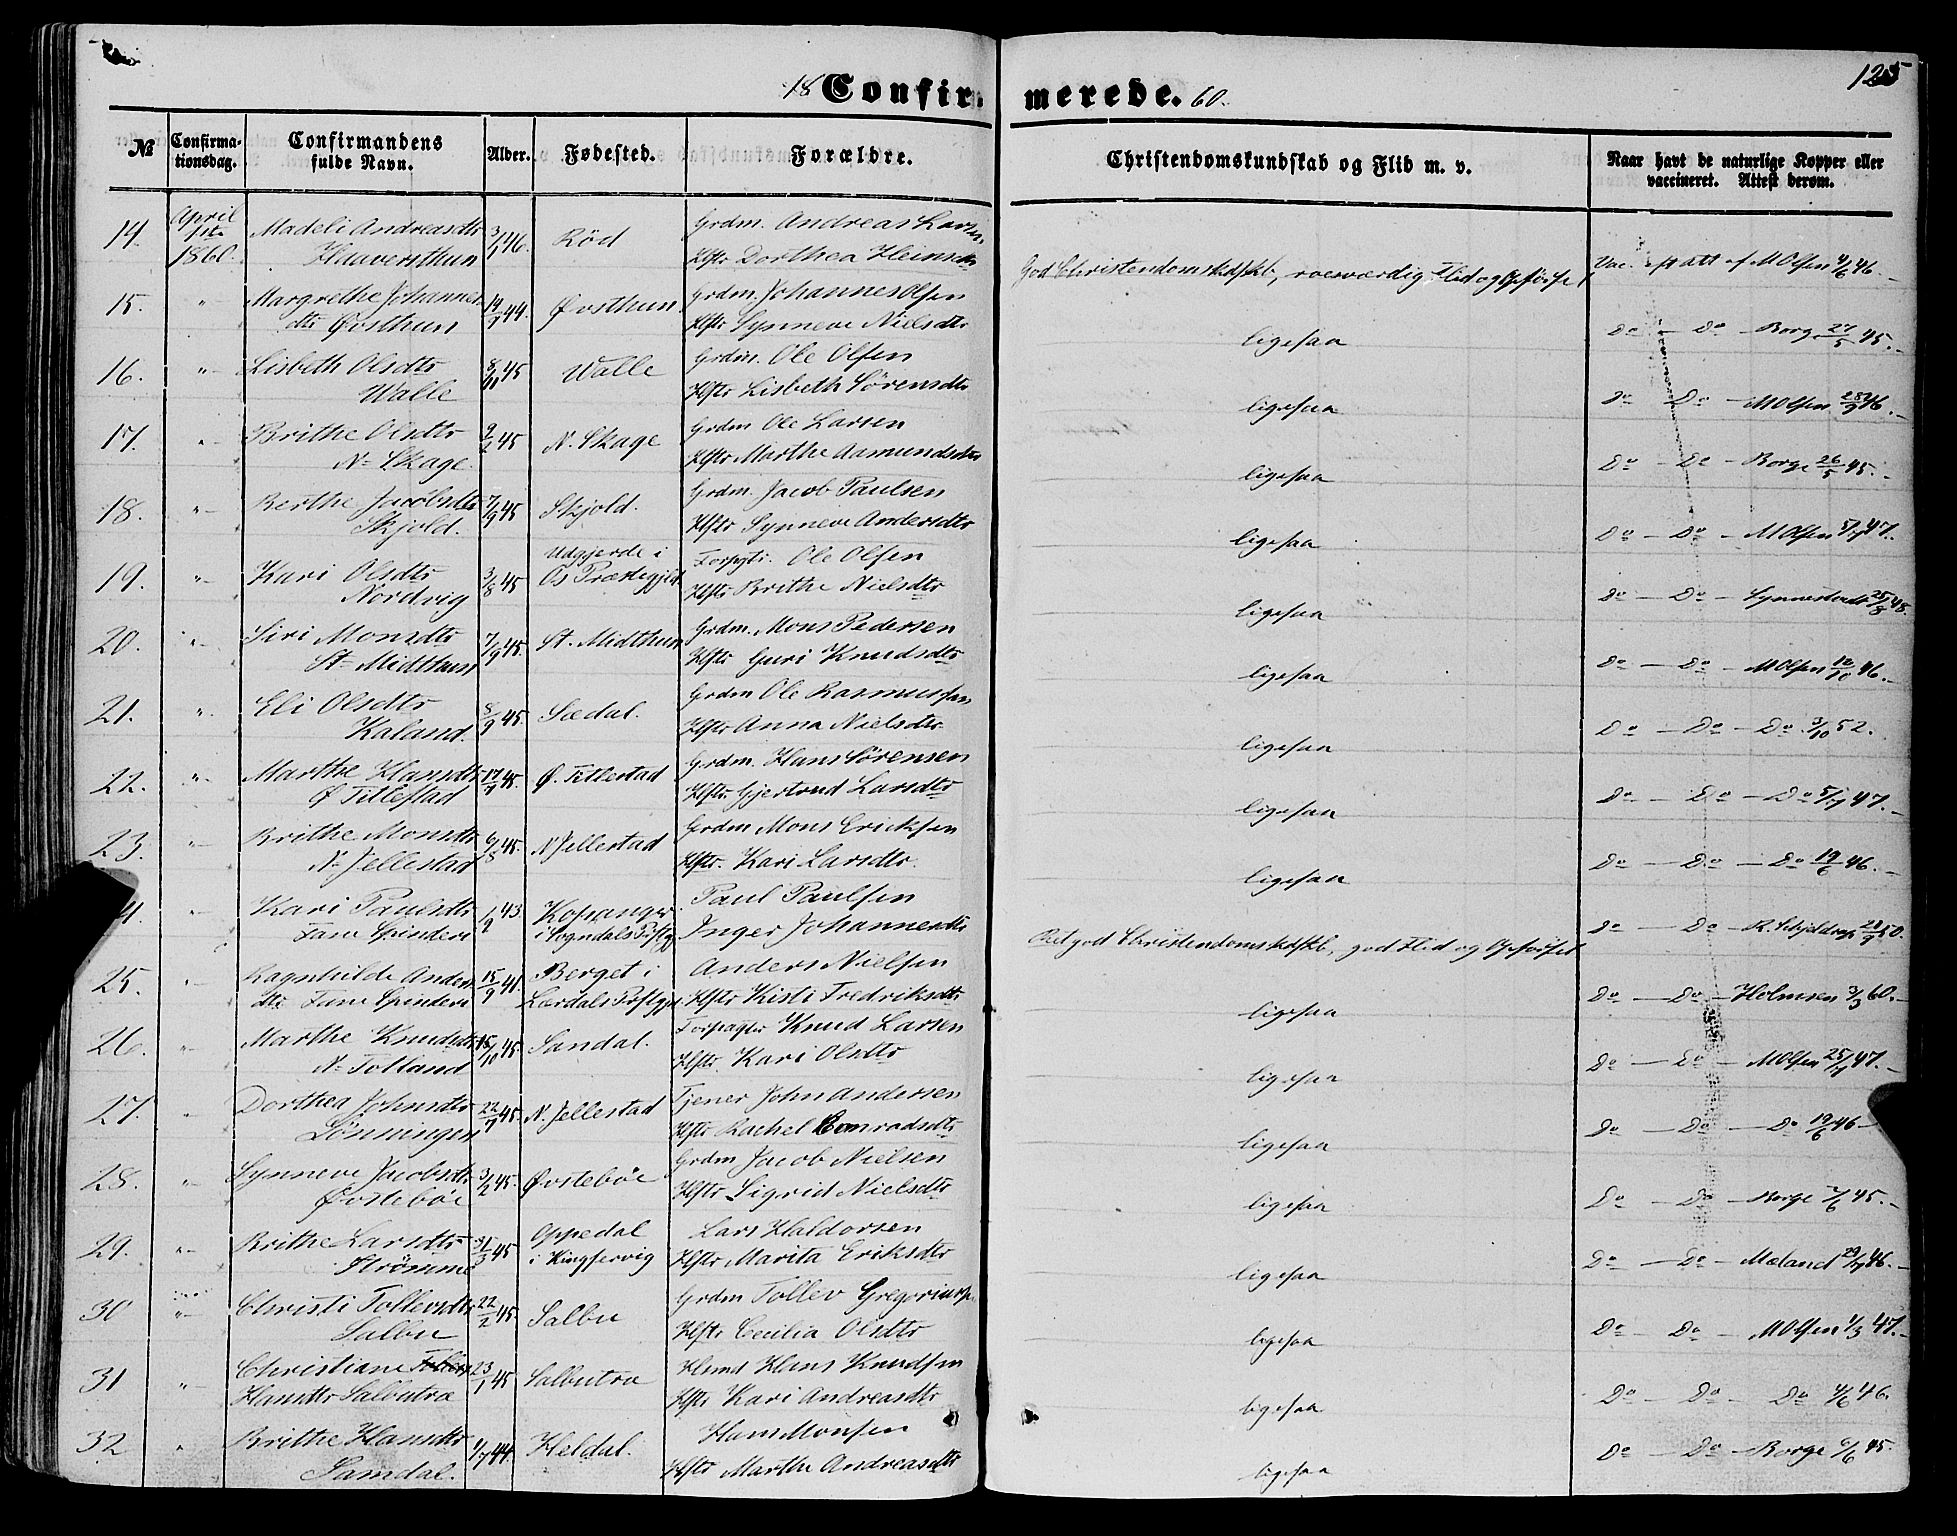 18 Confir- merede. 60.
125
№ Confirma- Confirmandens Alder. Fødested. Forældre. Christendomskundskab og Flid m. v. Naar havt de naturlige Kopper eller
tionsdag. fulde Navn. vaccineret. Attest derom.
14. April 1ste 1860. Madeli Andreasdtr 3/1 46. Rød Grdm. Andreas Larsen
Haaversthun Hstr Dorthea Heinsdtr God Christendomskdskb, roesværdig Flid og Opførsel Vac. eft att af M Olsen 4/6 46.
15. " Margrethe Johannes 19/7 44. Øvsthun Grdm. Johannes Olsen
dtr Øvsthun Hstr Synneve Nielsdtr ligesaa Do — Do — Borge 27/5 45.
16. " Lisbeth Olsdtr 8/11 45 Walle Grdm. Ole Olsen
Walle Hstr Lisbeth Sørensdtr ligesaa Do — Do — M Olsen 28/9 46.
17. " Brithe Olsdtr 2/2 45 N. Skage Grdm Ole Larsen
N. Skage. Hstr Marthe Aamundsdtr ligesaa Do — Do — Borge 26/5 45.
18. " Berthe Jacobsdtr 7/9 45 Skjold. Grdm. Jacob Paulsen
Skjold. Hstr Synneve Andersdtr ligesaa Do — Do — M Olsen 5/7 47.
19. " Kari Olsdtr 3/8 45 Udgjerde i Forpgtr. Ole Olsen
Nordvig Os Præstegjeld Hstr Brithe Nielsdtr ligesaa Do — Do — Synnestvedt 25/8 48.
20. " Siri Monsdtr 7/9 45. St. Midthun Grdm. Mons Pedersen
St. Midthun Hstr Guri Knudsdtr ligesaa Do — Do — M Olsen 12/10 46.
21. " Eli Olsdtr 8/9 45. Sædal. Grdm Ole Rasmussen
Kaland. Hstr Anna Nielsdtr. ligesaa Do — Do — Do 3/10 52.
22. " Marthe Hansdtr 17/9 45. Ø. Titlestad Grdm. Hans Sørensen
Ø Titlestad Hstr. Gjertrud Larsdtr ligesaa Do — Do — Do 5/7 47.
23. " Brithe Monsdtr 6/8 45. N Jellestad Grdm Mons Ericksen
N. Jellestad Hstr. Kari Larsdtr. ligesaa Do — Do — Do 19/6 46.
4. " Kari Paulsdtr 1/2 43 Kopanger Paul Paulsen
Fane Spinderi i Sogndals Pstgj Inger Johannesdtr Ret god Christendomskdskb, god Flid og Opførsel Do — Do — R. Schjelderup 28/9 50.
25. " Ragnhilde Anders 15/9 41. Berget i Anders Nielsen
dtr Fane Spinderi Lærdals Pstgjd Hstr Kisti Fredriksdtr ligesaa Do — Do — Holmsen 3/3 60.
26. " Marthe Knudsdtr 15/10 45. Sandal. Forpagter Knud Larsen
N. Tolland Hstr. Kari Olsdtr ligesaa Do — Do — M Olsen 25/7 47.
27. " Dorthea Johnsdtr 22/7 45. N. Jellestad Tjener John Andersen
Lönningen Hstr Rachel Conradsdtr ligesaa Do — Do — Do 19/6 46
28. " Synneve Jacobsdtr 3/2 45. Øvstebøe Grdm Jacob Nielsen
Øvstebøe Hstr Sigrid Nielsdtr ligesaa Do — Do — Borge 7/6 45.
29. " Brithe Larsdtr 31/3 45 Oppedal Lars Haldorsen
Strömme i Kingservig Hstr Marita Eriksdtr ligesaa Do — Do — Meland 29/7 46.
30 " Christi Tollevsdtr 22/2 45. Salbu Grdm Tollev Gregoriusen
Salbu Hstr Cecilia Olsdtr ligesaa Do — Do — M Olsen 1/3 47.
31 " Christiane 23/1 45 Salbutræ Husmd Hans Knudsen
Hansdtr Salbutræ Hstr Kari Andreasdtr ligesaa Do — Do — Do 4/6 46.
32 " Brithe Hansdtr 1/7 44. Heldal. Hans Monsen
Samdal. Hstr Marthe Andreasdtr ligesaa Do — Do — Borge 6/6 45.